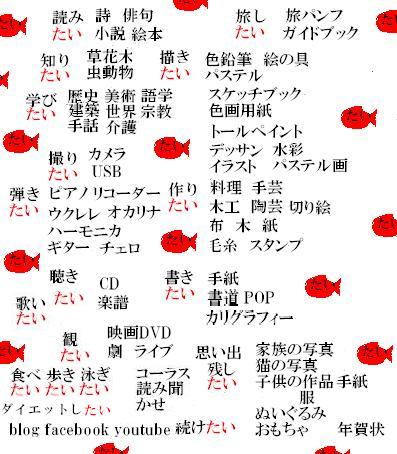 読み 詩 俳句
たい 小説 絵本
旅し 旅パンフ
たい ガイドブック
知り 草花木
たい 虫動物
描き 色鉛筆 絵の具
たい パステル
スケッチブック
色画用紙
トールペイント
デッサン 水彩
イラスト パステル画
学び 歴史 美術 語学
たい 建築 世界 宗教
手話 介護
撮り カメラ
たい USB
弾き ピアノリコーダー
たい ウクレレ オカリナ
ハーモニカ
ギター チェロ
作り 料理 手芸
たい 木工 陶芸 切り絵
布 木 紙
毛糸 スタンプ
聴き CD
たい
歌い 楽譜
たい
書き 手紙
たい 書道 POP
カリグラフィー
観 映画DVD
たい 劇 ライブ
思い出 家族の写真
残し 猫の写真
たい 子供の作品 手紙
服
ぬいぐるみ
おもちゃ 年賀状
食べ 歩き 泳ぎ コーラス
たい たい たい 読み聞
かせ
ダイエットしたい
blog facebook youtube 続けたい
たい
たい
たい
たい
たい
たい
たい
たい
たい
たい
たい
たい